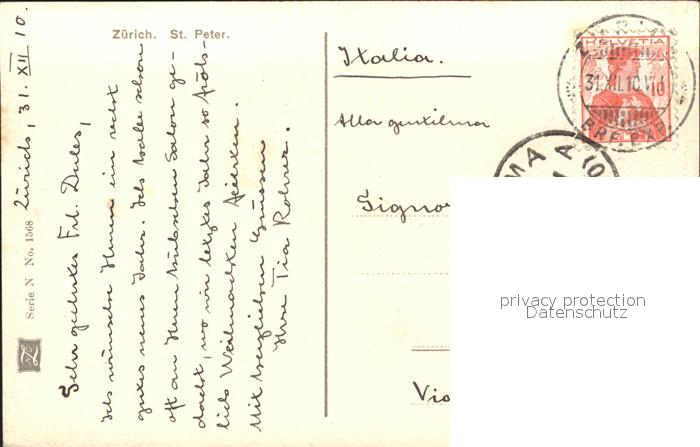 Zürich. St. Peter.
Serie N No. 1568
Zürich, 31. XII 10.
Sehr geehrtes Frl. Dules,
Ich wünsche Ihnen ein recht
gutes neues Jahr. Ich habe schon
oft an Ihren hübschen Salon ge-
dacht, wo wir letztes Jahr so fröh-
lich Weihnachten feierten.
Mit herzlichen Grüssen
Ihre Tia Rohrer.
Italia.
Alla gentilma
Signor
Via
HELVETIA
31.XII.10.VII
BRF. EXP.
ROMA
privacy protection
Datenschutz